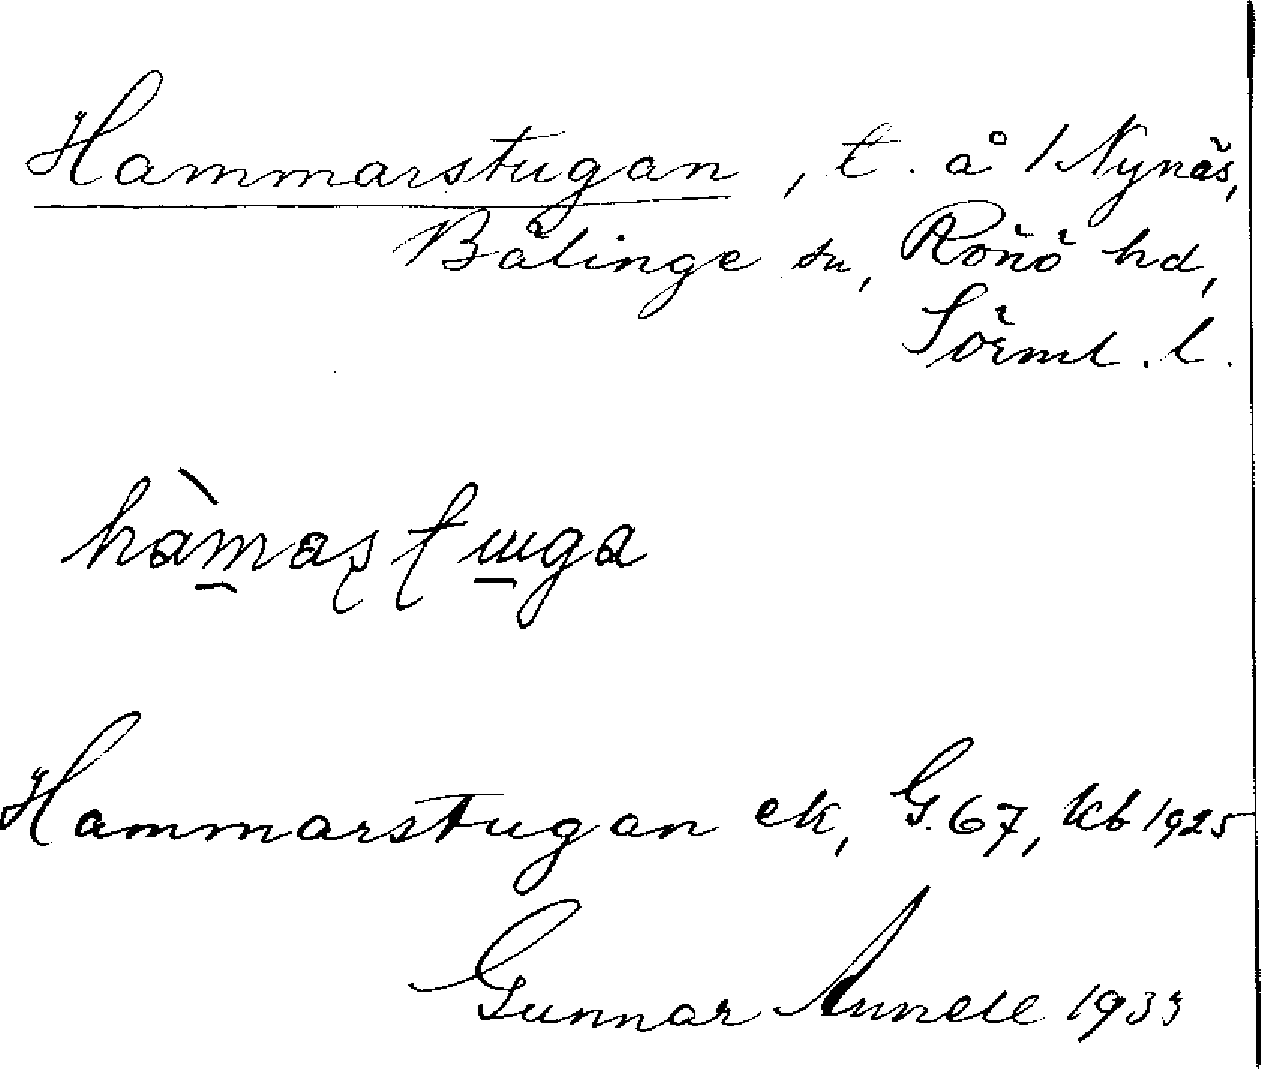 Hammarstugan, t. å 1 Nynäs,
Bälinge sn, Rönö hd,
Sörml. l.
hàmaʂʈɯga
Hammarstugan ek, G.67, Kb 1925
Gunnar Annell 1933